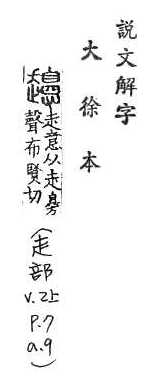 説文解字
大徐本
走意从走㝱
聲布賢切
(走部
v.2上
P.7
a.9)